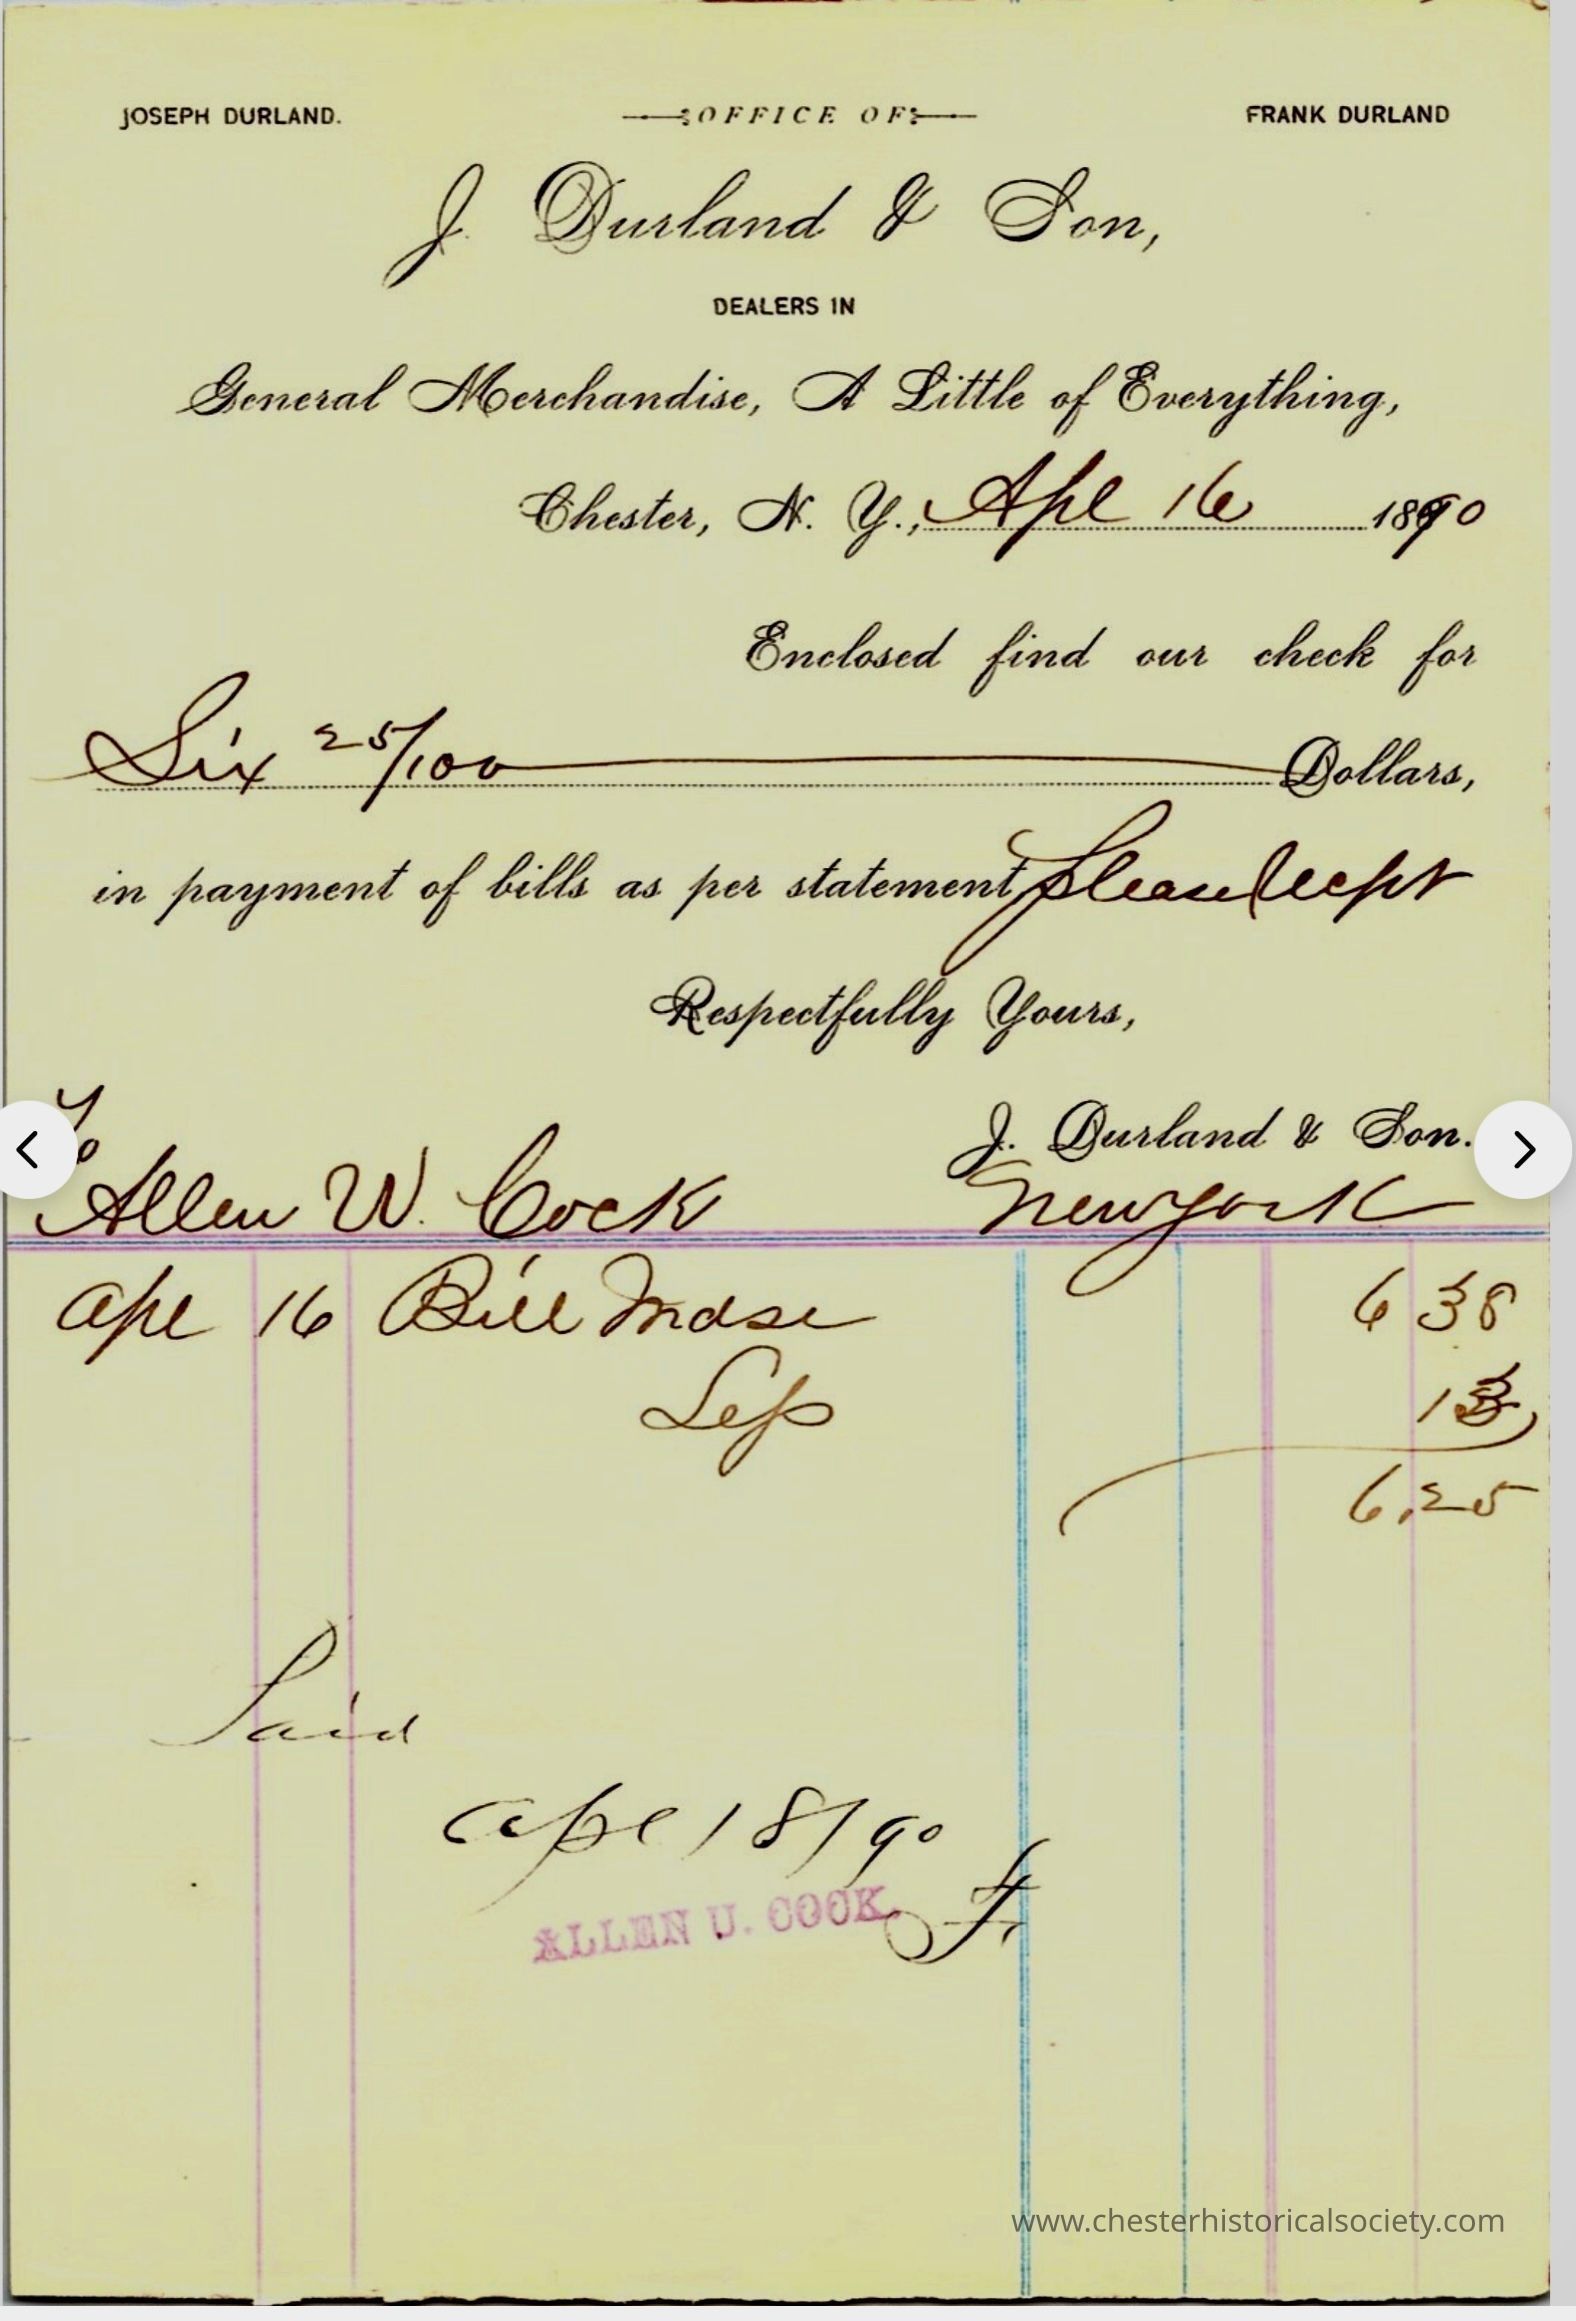 JOSEPH DURLAND. OFFICE OF FRANK DURLAND
J. Durland & Son,
DEALERS IN
General Merchandise, A Little of Everything,
Chester, N. Y., Apl 16 1890
Enclosed find our check for
Six 25/100 Dollars,
in payment of bills as per statement please
Respectfully Yours,
To J. Durland & Son.
Allen W. Cock New York
Apl 16 Bill Mdse 6 38
Less 13
6.25
Paid
Apl 18/90
ALLEN U. COOK.
F.
www.chesterhistoricalsociety.com